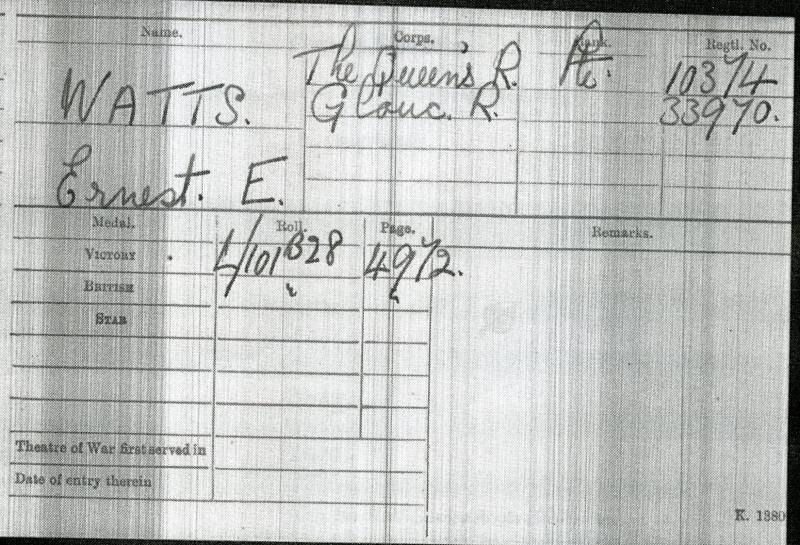 Name. Corps. Rank. Regtl. No.
WATTS. The Queen's R. Pte. 10374
Glouc. R. 33970.
Ernest. E.
Medal. Roll. Page. Remarks.
VICTORY L/101B28 4972.
BRITISH
STAR
Theatre of War first served in
Date of entry therein
K. 1380